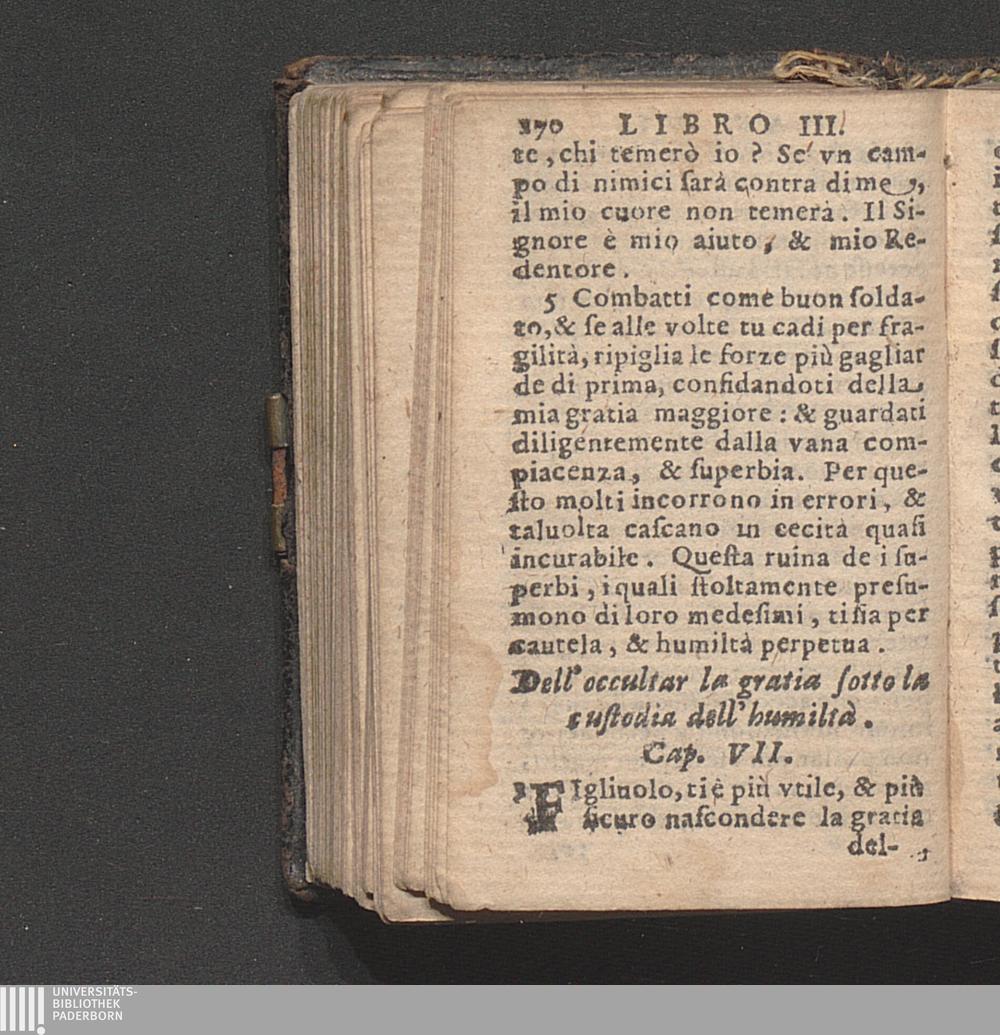 170 LIBRO III.
te, chi temerò io? Se vn cam-
po di nimici ſarà contra di me,
il mio cuore non temerà. Il Si-
gnore è mio aiuto, & mio Re-
dentore.
5 Combatti come buon ſolda-
to, & ſe alle volte tu cadi per fra-
gilità, ripiglia le forze più gagliar
de di prima, confidandoti della
mia gratia maggiore: & guardati
diligentemente dalla vana com-
piacenza, & ſuperbia. Per que-
ſto molti incorrono in errori, &
taluolta caſcano in cecità quaſi
incurabile. Queſta ruina de i ſu-
perbi, i quali ſtoltamente preſu-
mono di loro medeſimi, ti ſia per
cautela, & humiltà perpetua.
Dell'occultar la gratia ſotto la
cuſtodia dell'humiltà.
Cap. VII.
FIgliuolo, ti è più vtile, & più
ſicuro naſcondere la gratia
del-
UNIVERSITÄTS-
BIBLIOTHEK
PADERBORN